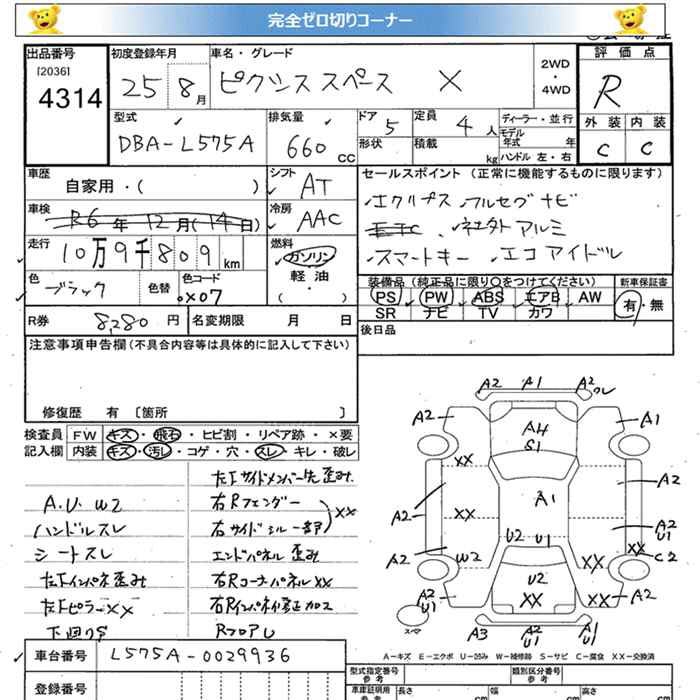 完全ゼロ切りコーナー
出品番号 初度登録年月 車名・グレード 2WD ・ 4WD 評価点
[2036]
4314 25 8月 ピクシス スペース X R
型式 排気量 ドア 定員 ディーラー・並行 外装 内装
DBA-L575A 660 CC 5 4人 モデル年式 年 C C
形状 積載 kg ハンドル 左・右
車歴 シフト セールスポイント (正常に機能するものに限ります)
自家用・( ) AT エクリプス フルセグナビ
車検 冷房
R6年12月(14日) AAC 社外アルミ
走行 燃料
10万9千809km ガソリン スマートキー、エコアイドル
軽油
・( )
色 色替 色コード 装備品 (純正品に限り○をつけてください) 新車保証書
ブラック X07 PS PW ABS エアB AW 有・無
SR ナビ TV カワ
R券 8,280円 名変期限 月 日 後日品
注意事項申告欄(不具合内容等は具体的に記入して下さい)
修復歴 有 [箇所 ]
検査員 FW キズ・飛石・ヒビ割・リペア跡・×要
記入欄 内装 キズ・汚レ・コゲ・穴・スレ・キレ・破レ
左Fサイドメンバー先歪み
A.U.W2 右Rフェンダー
ハンドルスレ 右サイドシル一部 XX
シートスレ エンドパネル歪み
左Fインパネ歪み 右Rコーナパネル XX
左Fピラー XX 右Rインパネ修正加工
下廻りS RフロアU
A2 A1 A2 ワレ
A2 A4 S1 A1
XX
A2 XX A1 A2
A2 U1
A2 W2 U2 U1 XX C2
U2 XX
A2 U1 XX XX A2
スペア
A3 A2 U1 A1 U1
A－キズ E－エクボ U－凹み W－補修跡 S－サビ C－腐食 XX－交換済
車台番号 L575A-0029936
型式指定番号 参考 類別区分番号 参考
登録番号 車庫証明用 参考 長さ cm 幅 cm 高さ cm